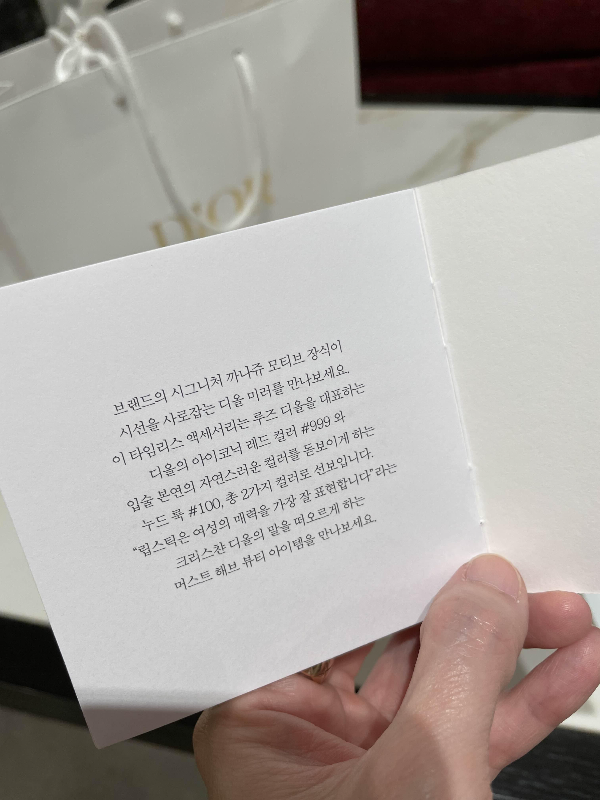 DIOR
브랜드의 시그니처 까나쥬 모티브 장식이
시선을 사로잡는 디올 미러를 만나보세요.
이 타임리스 액세서리는 루즈 디올을 대표하는
디올의 아이코닉 레드 컬러 #999 와
입술 본연의 자연스러운 컬러를 돋보이게 하는
누드 룩 #100, 총 2가지 컬러로 선보입니다.
“립스틱은 여성의 매력을 가장 잘 표현합니다”라는
크리스챤 디올의 말을 떠오르게 하는
머스트 해브 뷰티 아이템을 만나보세요.